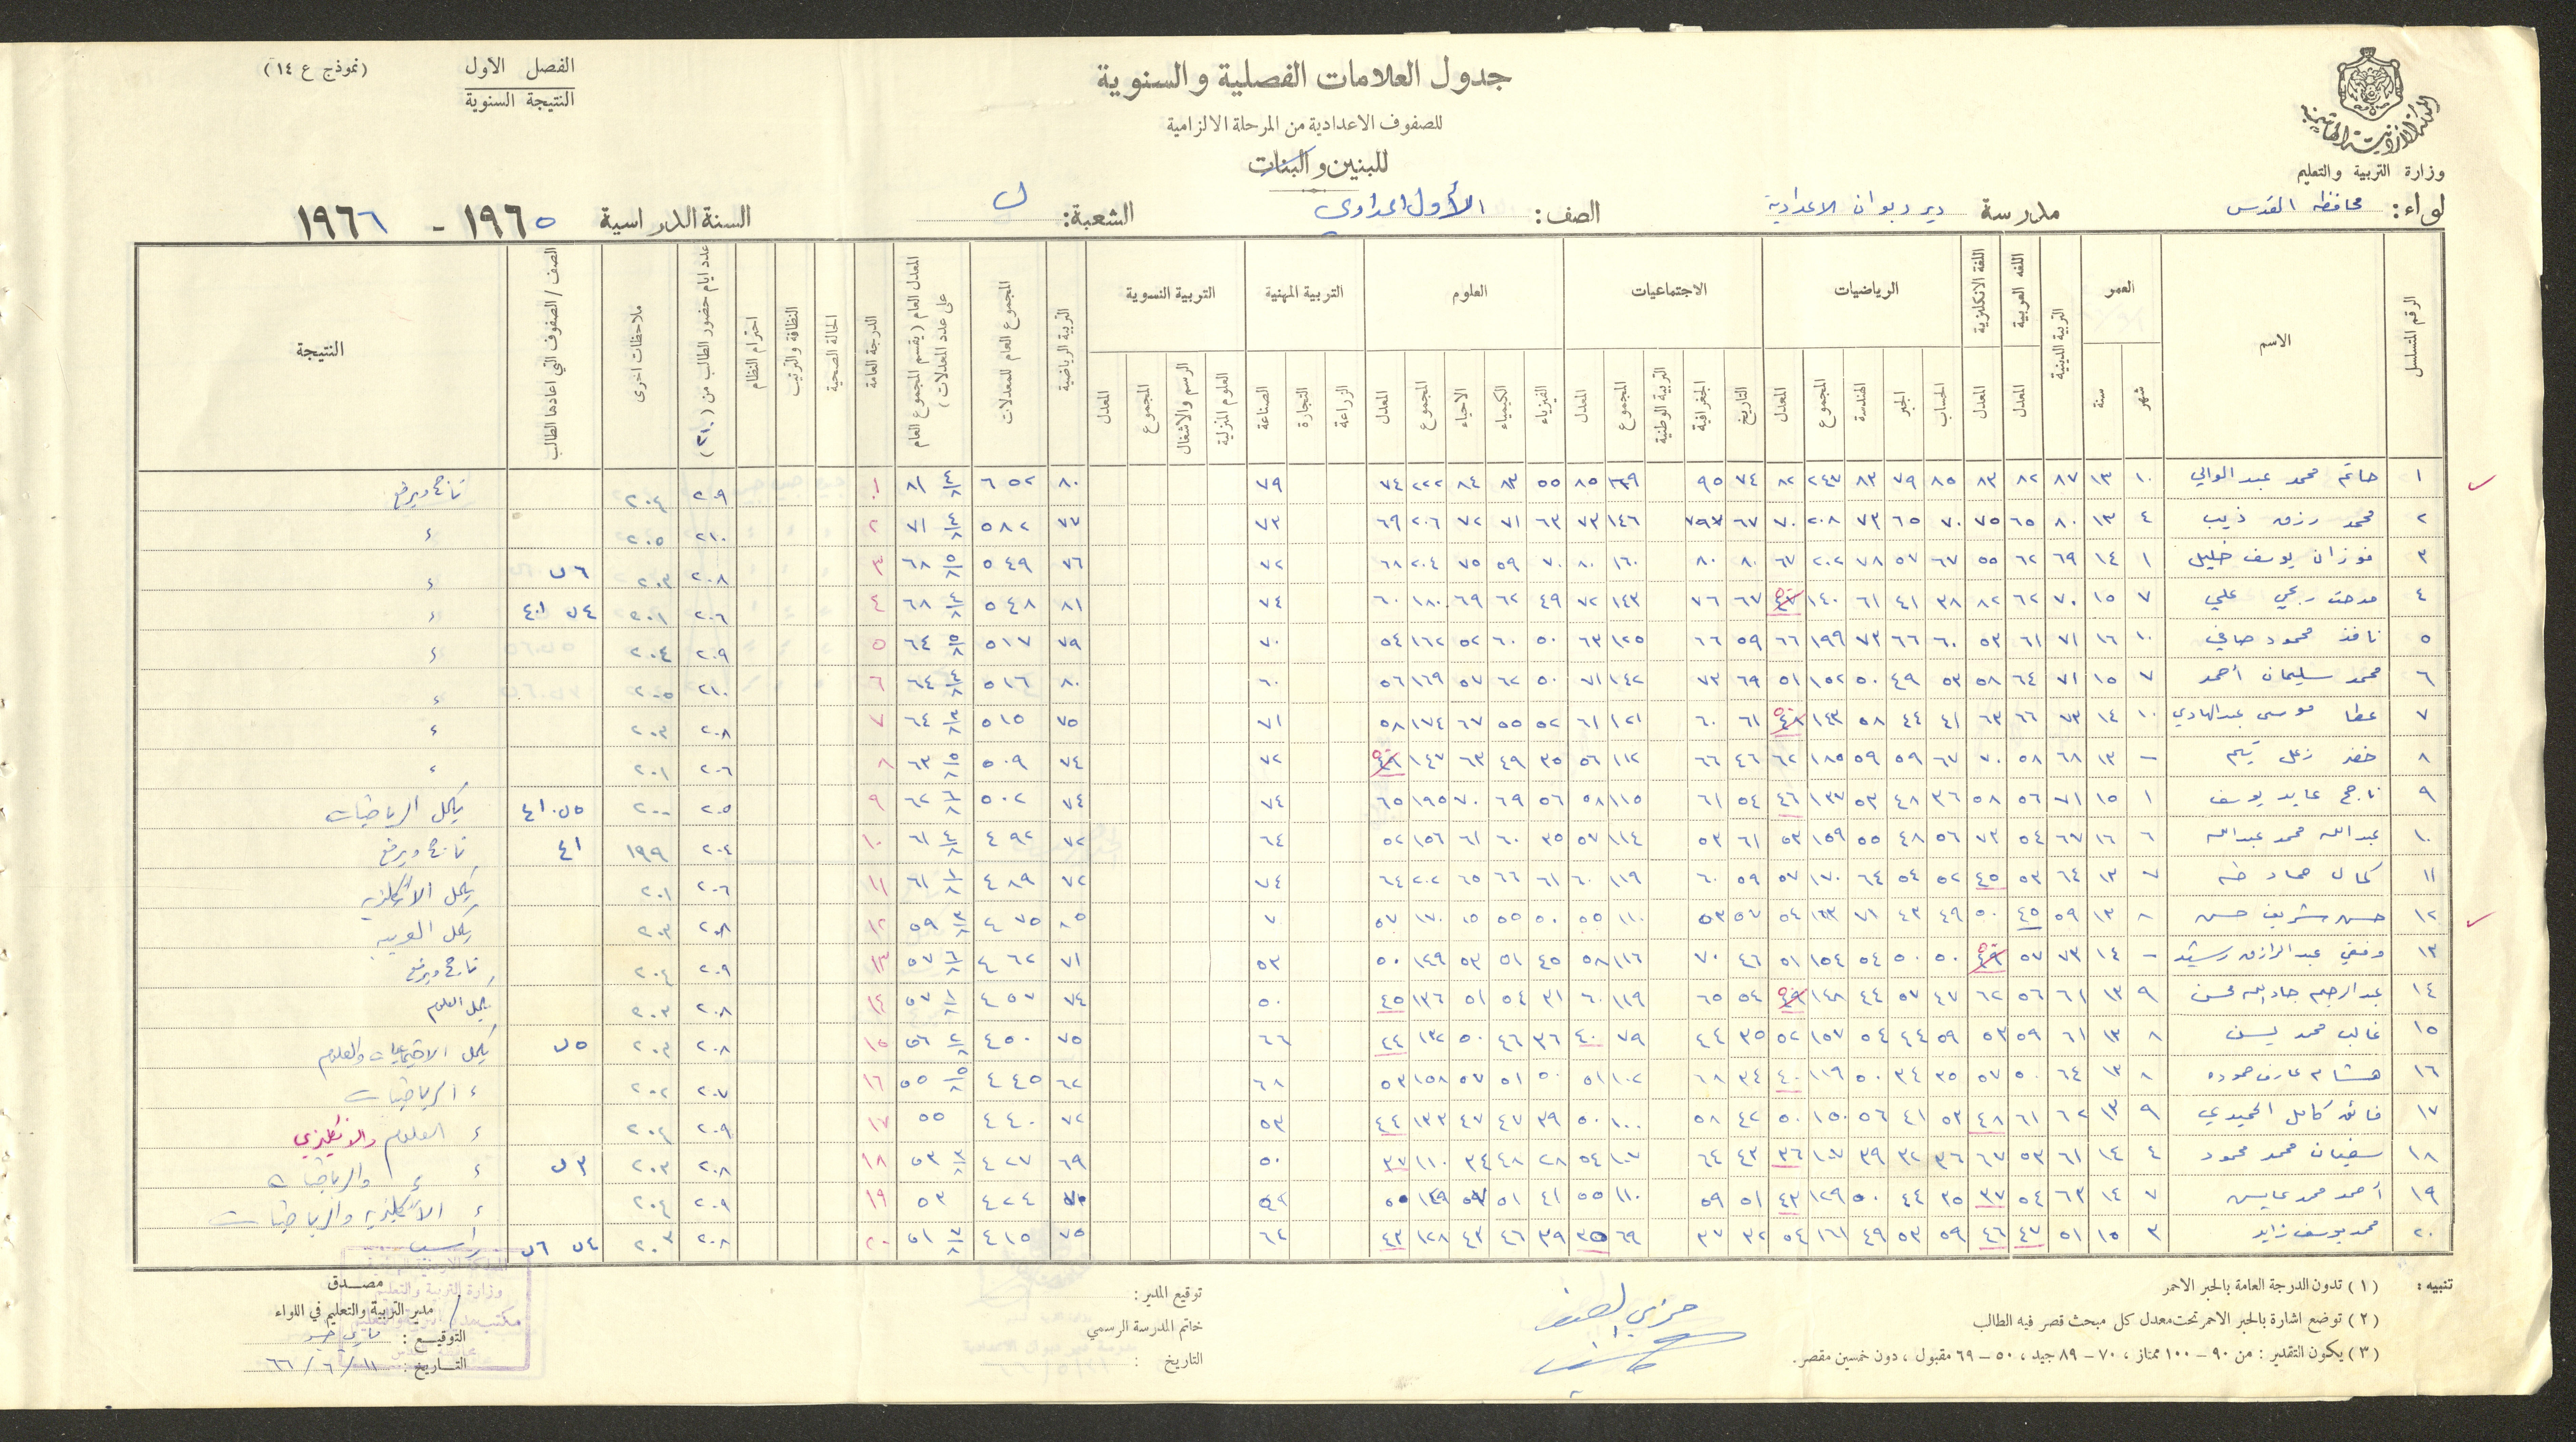 المملكة الاردنية الهاشمية
وزارة التربية والتعليم
جدول العلامات الفصلية والسنوية
للصفوف الاعدادية من المرحلة الالزامية
للبنين والبنات
الفصل الاول
النتيجة السنوية
(نموذج ع ١٤)
لواء: محافظة القدس مدرسة دير دبوان الاعدادية الصف: الأول اعدادي الشعبة: ب السنة الدراسية ١٩٦٥ - ١٩٦٦
الرقم المتسلسل الاسم العمر التربية الدينية اللغه العربية اللغة الانكلزية الرياضيات الاجتماعيات العلوم التربية المهنية التربية النسوية التربية الرياضية المجموع العام للمعدلات المعدل العام (يقسم المجموع العام على عدد المعدلات) الدرجة العامة الحالة الصحية النظافة والترتيب احترام النظام عدد ايام حضور الطالب من (٢١٠) ملاحظات اخرى الصف / الصفوف التي اعادها الطالب النتيجة
شهر سنة المعدل المعدل الحساب الجبر الهندسة المجموع المعدل التاريخ الجغرافية التربية الوطنية المجموع المعدل الفيزياء الكيمياء الاحياء المجموع المعدل الزراعة التجارة الصناعة العلوم المنزلية الرسم والاشغال المجموع المعدل
١ حاتم محمد عبد الوالي ١٠ ١٣ ٨٧ ٨٢ ٨٣ ٨٥ ٧٩ ٨٣ ٢٤٧ ٨٢ ٧٤ ٩٥ ١٦٩ ٨٥ ٥٥ ٨٣ ٨٤ ٢٢٢ ٧٤ ٧٩ ٨٠ ٦٥٢ ٨١ ٤/٨ ١ ٢٠٩ ٢٠٤ ناجح ويرفع
٢ محمد رزق ذيب ٤ ١٣ ٨٠ ٦٥ ٧٥ ٧٠ ٦٥ ٧٣ ٢٠٨ ٧٠ ٦٧ ٧٩ ١٤٦ ٧٣ ٦٣ ٧١ ٧٢ ٢٠٦ ٦٩ ٧٣ ٧٧ ٥٨٢ ٢ ٢١٠ ٢٠٥ ء
٣ فوزان يوسف خليل ١ ١٤ ٦٩ ٦٢ ٥٥ ٦٧ ٥٧ ٧٨ ٢٠٢ ٦٧ ٨٠ ٨٠ ١٦٠ ٨٠ ٧٠ ٥٩ ٧٥ ٢٠٤ ٦٨ ٧٢ ٧٦ ٥٤٩ ٦٨ ٥/٨ ٣ ٢٠٨ ٢٠٣ ٦ب ء
٤ مدحت ربحي علي ٧ ١٥ ٧٠ ٦٢ ٨٢ ٣٨ ٤١ ٦١ ١٤٠ ٤٧ ٦٧ ٧٦ ١٤٣ ٧٢ ٤٩ ٦٢ ٦٩ ١٨٠ ٦٠ ٧٤ ٨١ ٥٤٨ ٦٨ ٤/٨ ٤ ٢٠٦ ٢٠١ ٤ب ٤١ ء
٥ نافذ محمود صافي ١٠ ١٦ ٧١ ٦١ ٥٣ ٦٠ ٦٦ ٧٣ ١٩٩ ٦٦ ٥٩ ٦٦ ١٢٥ ٦٣ ٥٠ ٦٠ ٥٢ ١٦٢ ٥٤ ٧٠ ٧٩ ٥١٧ ٦٤ ٥/٨ ٥ ٢٠٩ ٢٠٤ ء
٦ محمد سليمان أحمد ٧ ١٥ ٧١ ٦٤ ٥٨ ٥٣ ٤٩ ٥٠ ١٥٢ ٥١ ٦٩ ٧٣ ١٤٢ ٧١ ٥٠ ٦٢ ٥٧ ١٦٩ ٥٦ ٦٠ ٨٠ ٥١٦ ٦٤ ٤/٨ ٦ ٢١٠ ٢٠٥ ء
٧ عطا موسى عبد الهادي ١٠ ١٤ ٧٣ ٦٦ ٦٣ ٤١ ٤٤ ٥٨ ١٤٣ ٤٨ ٦١ ٦٠ ١٢١ ٦١ ٥٢ ٥٥ ٦٧ ١٧٤ ٥٨ ٧١ ٧٥ ٥١٥ ٦٤ ٣/٨ ٧ ٢٠٨ ٢٠٣ ء
٨ خضر زعل تيم - ١٣ ٦٨ ٥٨ ٧٠ ٦٧ ٥٩ ٥٩ ١٨٥ ٦٢ ٤٦ ٦٦ ١١٢ ٥٦ ٣٥ ٤٩ ٦٣ ١٤٧ ٤٩ ٧٢ ٧٤ ٥٠٩ ٦٣ ٥/٨ ٨ ٢٠٦ ٢٠١ ء
٩ ناجح عايد يوسف ١ ١٥ ٧١ ٥٦ ٥٨ ٣٦ ٤٨ ٥٣ ١٣٧ ٤٦ ٥٤ ٦١ ١١٥ ٥٨ ٥٦ ٦٩ ٧٠ ١٩٥ ٦٥ ٧٤ ٧٤ ٥٠٢ ٦٢ ٦/٨ ٩ ٢٠٥ ٢٠٠ ٥ب ٤١ يكمل الرياضيات
١٠ عبد الله محمد عبد الله ٦ ١٦ ٦٧ ٥٤ ٧٣ ٥٦ ٤٨ ٥٥ ١٥٩ ٥٣ ٦١ ٥٣ ١١٤ ٥٧ ٣٥ ٦٠ ٦١ ١٥٦ ٥٢ ٦٤ ٧٢ ٤٩٢ ٦١ ٤/٨ ١٠ ٢٠٤ ١٩٩ ٤١ ناجح ويرفع
١١ كمال حماد طه ٧ ١٣ ٦٤ ٥٣ ٤٥ ٥٢ ٥٤ ٦٤ ١٧٠ ٥٧ ٥٩ ٦٠ ١١٩ ٦٠ ٦١ ٦٦ ٦٥ ٢٠٢ ٦٤ ٧٤ ٧٢ ٤٨٩ ٦١ ١/٨ ١١ ٢٠٦ ٢٠١ يكمل الانكليزيه
١٢ حسن شريف حسن ٨ ١٣ ٥٩ ٤٥ ٥٠ ٤٩ ٤٣ ٧١ ١٦٣ ٥٤ ٥٧ ٥٣ ١١٠ ٥٥ ٥٠ ٥٥ ٦٥ ١٧٠ ٥٧ ٧٠ ٨٥ ٤٧٥ ٥٩ ٣/٨ ١٢ ٢٠٨ ٢٠٣ يكمل العربيه
١٣ وفقي عبد الرازق رشيد - ١٤ ٧٣ ٥٧ ٤٩ ٥٠ ٥٠ ٥٤ ١٥٤ ٥١ ٤٦ ٧٠ ١١٦ ٥٨ ٤٥ ٥١ ٥٣ ١٤٩ ٥٠ ٥٣ ٧١ ٤٦٢ ٥٧ ٦/٨ ١٣ ٢٠٩ ٢٠٤ ناجح ويرفع
١٤ عبد الرحيم جاد الله محسن ٩ ١٣ ٦١ ٥٦ ٦٢ ٤٧ ٥٧ ٤٤ ١٤٨ ٤٩ ٥٤ ٦٥ ١١٩ ٦٠ ٣١ ٥٤ ٥١ ١٣٦ ٤٥ ٥٠ ٧٤ ٤٥٧ ٥٧ ١/٨ ١٤ ٢٠٨ ٢٠٣ يكمل العلوم
١٥ غالب محمد يسن ٨ ١٣ ٦١ ٥٩ ٥٣ ٥٩ ٤٤ ٥٤ ١٥٧ ٥٢ ٣٥ ٤٤ ٧٩ ٤٠ ٣٦ ٤٦ ٥٠ ١٣٢ ٤٤ ٦٦ ٧٥ ٤٥٠ ٥٦ ٢/٨ ١٥ ٢٠٨ ٢٠٣ ٥ب يكمل الاجتماعيات والعلوم
١٦ هشام عارف حموده ٨ ١٣ ٦٤ ٥٠ ٥٧ ٣٥ ٣٤ ٥٠ ١١٩ ٤٠ ٣٤ ٦٨ ١٠٢ ٥١ ٥٠ ٥١ ٥٧ ١٥٨ ٥٣ ٦٨ ٦٢ ٤٤٥ ٥٥ ٥/٨ ١٦ ٢٠٧ ٢٠٢ ء الرياضيات
١٧ فائق كامل الحميدي ٩ ١٣ ٦٢ ٦١ ٤٨ ٥٣ ٤١ ٥٦ ١٥٠ ٥٠ ٤٢ ٥٨ ١٠٠ ٥٠ ٣٩ ٤٧ ٤٧ ١٣٣ ٤٤ ٥٣ ٧٢ ٤٤٠ ٥٥ ١٧ ٢٠٩ ٢٠٤ ء العلوم والانكليزي
١٨ سفيان محمد محمود ٤ ١٤ ٦١ ٥٣ ٦٧ ٣٦ ٣٢ ٣٩ ١٠٧ ٣٦ ٤٣ ٦٤ ١٠٧ ٥٤ ٢٨ ٤٨ ٣٤ ١١٠ ٣٧ ٥٠ ٦٩ ٤٢٧ ٥٣ ٣/٨ ١٨ ٢٠٨ ٢٠٣ ٣ب ء ء والرياضيات
١٩ أحمد محمد عايس ٧ ١٤ ٦٣ ٥٤ ٣٧ ٣٥ ٤٤ ٥٠ ١٢٩ ٤٣ ٥١ ٥٩ ١١٠ ٥٥ ٤١ ٥١ ٥٧ ١٤٩ ٥٠ ٥٢ ٧٠ ٤٢٤ ٥٣ ١٩ ٢٠٩ ٢٠٤ ء الانكليزيه والرياضيات
٢٠ محمد يوسف زايد ٣ ١٥ ٥١ ٤٧ ٤٦ ٥٩ ٥٣ ٤٩ ١٦١ ٥٤ ٣٢ ٣٧ ٦٩ ٣٥ ٣٩ ٤٦ ٤٣ ١٢٨ ٤٣ ٦٢ ٧٥ ٤١٥ ٥١ ٧/٨ ٢٠ ٢٠٨ ٢٠٣ ٤ب ٦ب راسب
تنبيه: (١) تدون الدرجة العامة بالحبر الاحمر
(٢) توضع اشارة بالحبر الاحمر تحت معدل كل مبحث قصر فيه الطالب
(٣) يكون التقدير: من ٩٠ - ١٠٠ ممتاز، ٧٠ - ٨٩ جيد، ٥٠ - ٦٩ مقبول، دون خمسين مقصر.
مربي الصف
توقيع المدير:
خاتم المدرسة الرسمي
التاريخ :
مصدق
مدير التربية والتعليم في اللواء
التوقيع:
التاريخ: ١١ / ٦ / ٦٦
وزارة التربية والتعليم